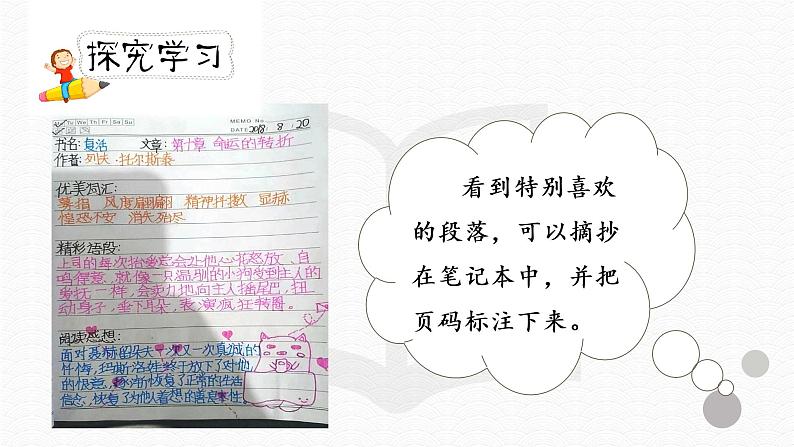 探究学习
Tu We Th Fr Sa Su
MEMO No.
DATE 2018 / 8 / 20
书名:复活 文章:第十章 命运的转折
作者:列夫·托尔斯泰
优美词汇:
风度翩翩 精神抖擞 显赫
惶恐不安 消失殆尽
精彩语段:
上司的每次抬爱总会让他心花怒放、自
鸣得意,就像一只温驯的小狗受到主人的
爱抚一样,会卖力地向主人摇尾巴,扭
动身子,垂下耳朵,表演疯狂转圈。
阅读感想:
面对聂赫留朵夫一次又一次真诚的
忏悔,玛斯洛娃终于放下了对他
的恨意,逐渐恢复了正常的生活
信念,恢复了为他人着想的善良本性。
看到特别喜欢
的段落,可以摘抄
在笔记本中,并把
页码标注下来。